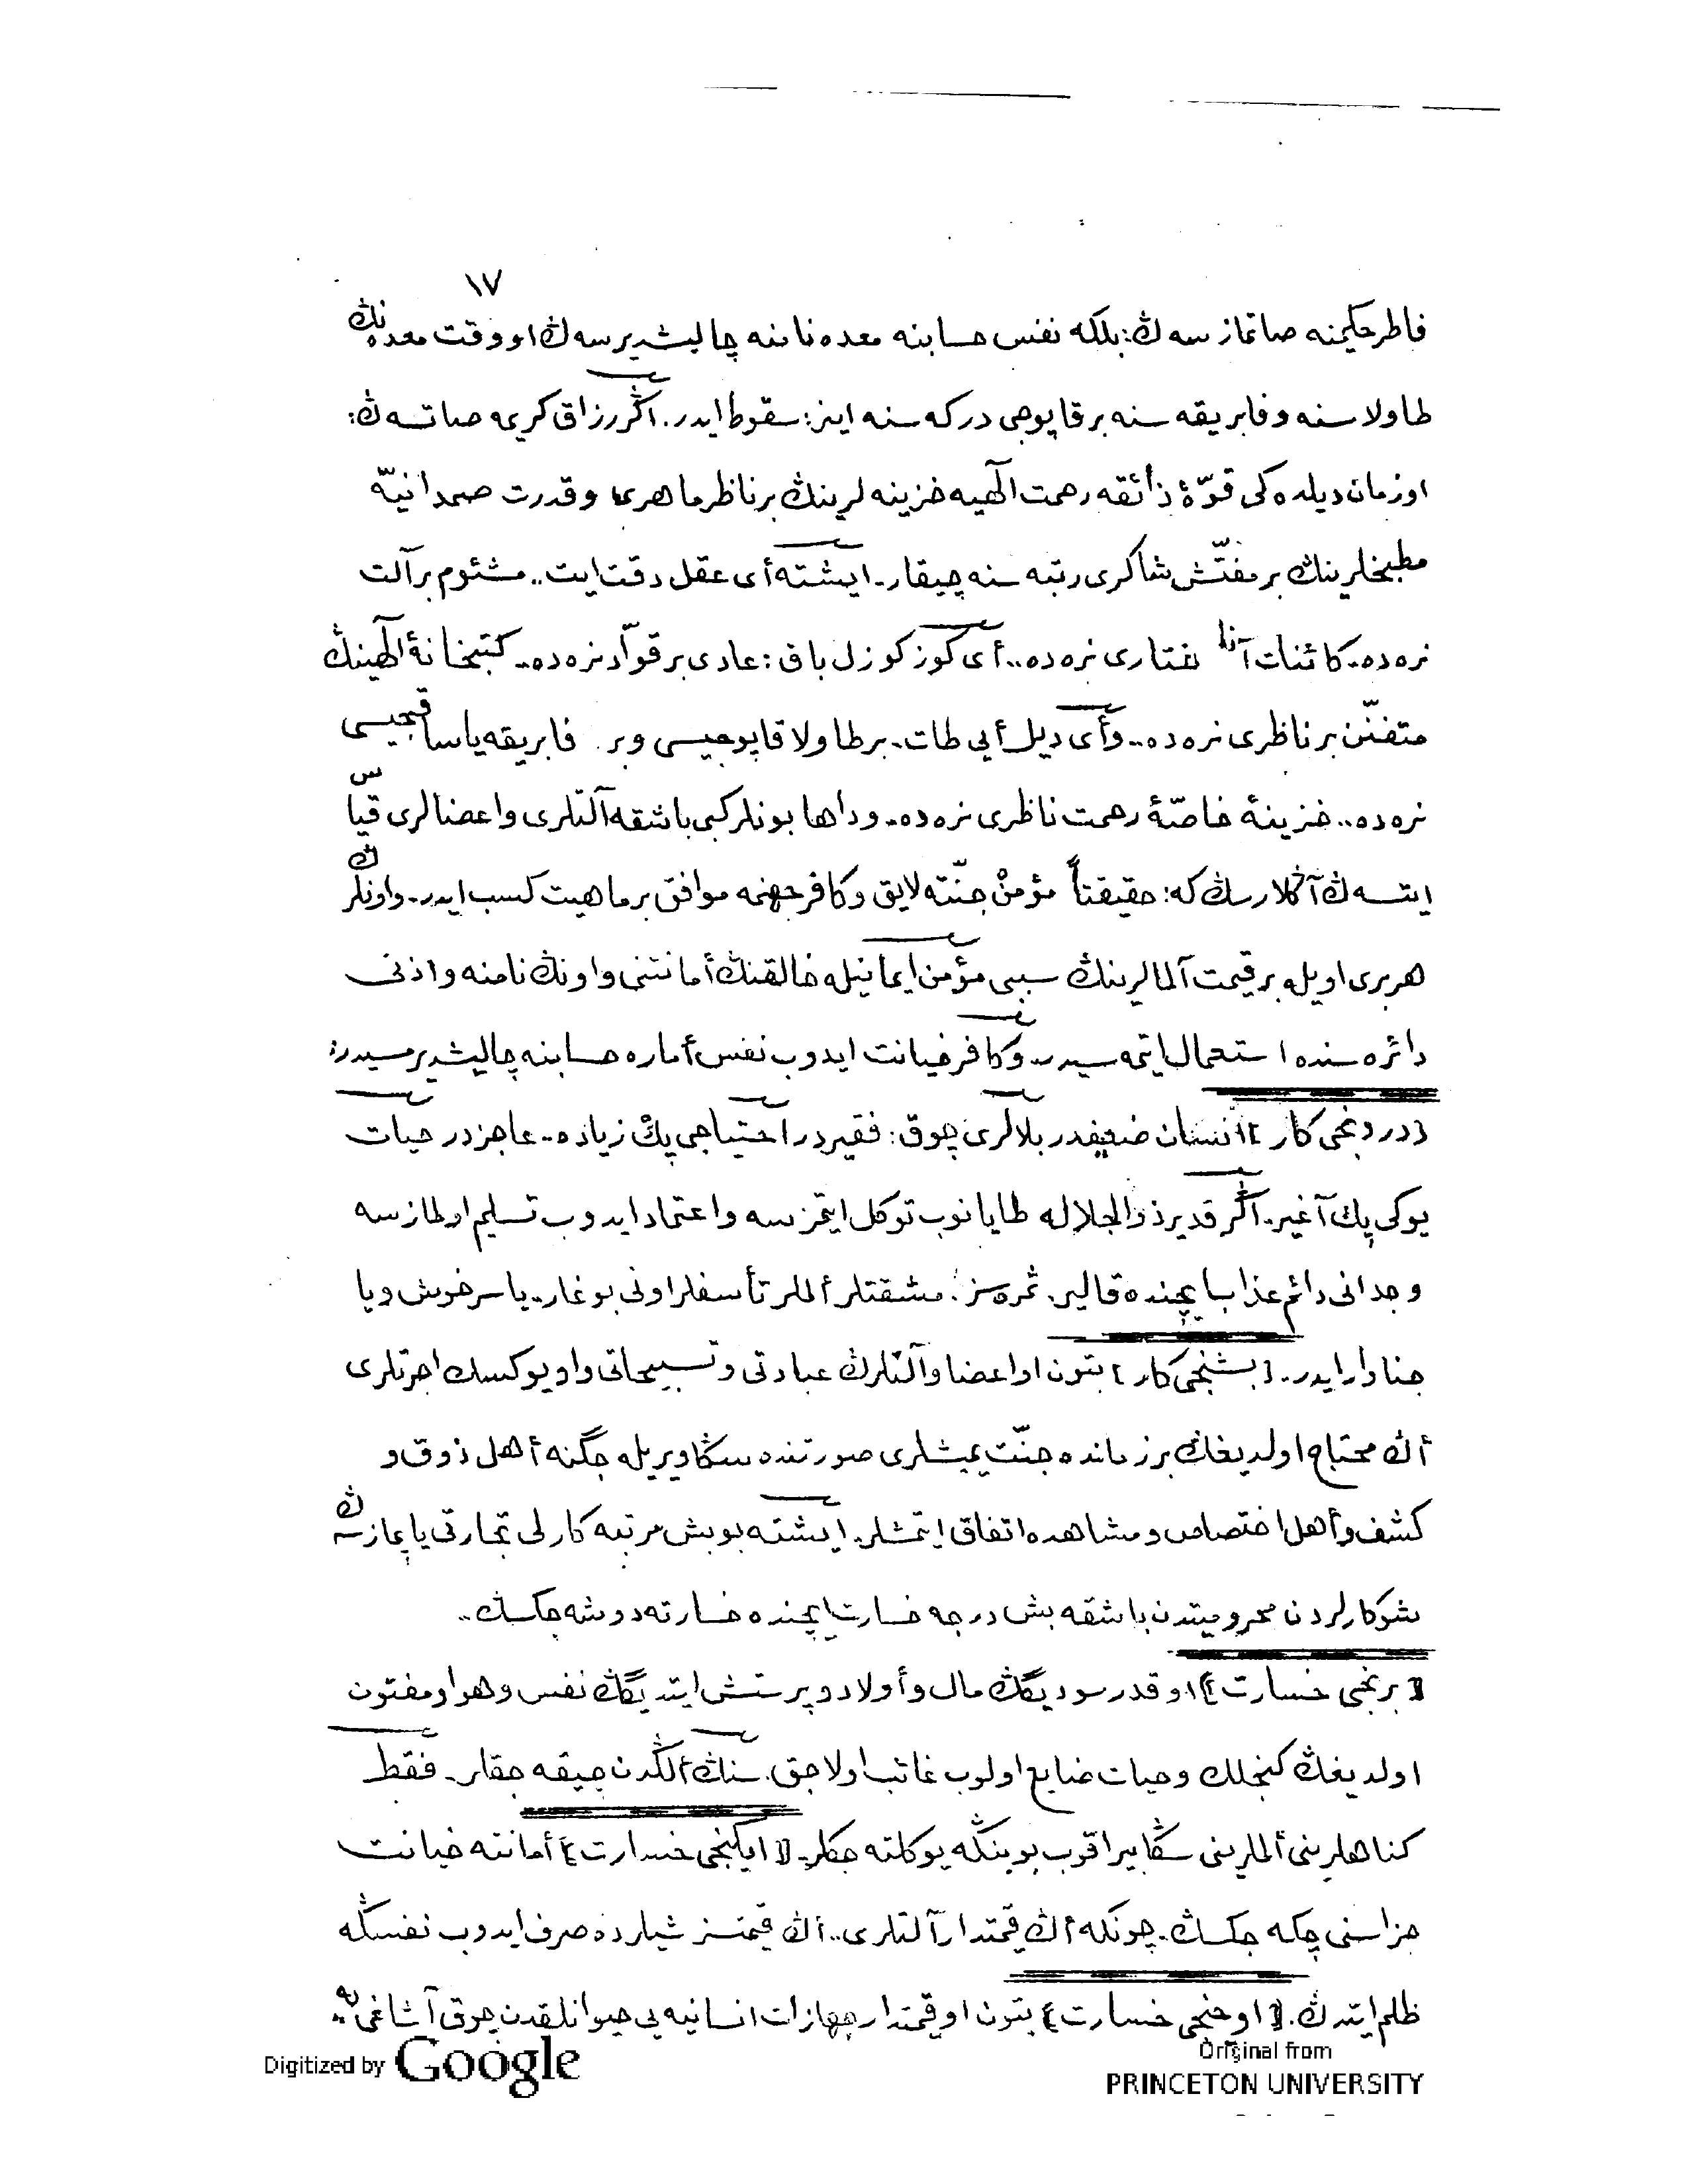 ١٧
فاطر حكيمنه صاتمازسه ڭ؛ بلكه نفس حسابنه معده نامنه چاليشديرسه ڭ او وقت معده نڭ
طاولاسنه و فابريقه سنه بر قاپوجى دركه سنه اينر؛ سقوط ايدر. اڭر رزاق كريمه صاتسه ڭ؛
اوزمان ديلده كى قوّۀ ذائقه رحمت الٓهيه خزينه لرينڭ بر ناظر ماهرى و قدرت صمدانيّه
مطبخلرينڭ بر مفتّش شاكرى رتبه سنه چيقار. ايشته أى عقل دقت ايت.. مشئوم بر آلت
نره ده. كائنات آناختارى نره ده.. أى كوز كوزل باق: عادى بر قوّاد نره ده.. كتبخانۀ الٓهينڭ
متفنّن بر ناظرى نره ده.. و أى ديل أيى طات. بر طاولا قاپوجيسى و بر فابريقه ياساقجيسى
نره ده.. خزينۀ خاصّۀ رحمت ناظرى نره ده. و داها بونلر كبى باشقه آلتلرى و اعضالرى قيّاس
ايتسه ڭ آڭلارسڭ كه: حقيقتاً مؤمن جنّته لايق و كافر جهنمه موافق بر ماهيت كسب ايدر. و اونلرڭ
هر برى اويله بر قيمت آلمالرينڭ سببى مؤمن ايمانيله خالقنڭ أمانتنى و اونڭ نامنه و اذنى
دائره سنده استعمال ايتمه سيدر. و كافر خيانت ايدوب نفس أماره حسابنه چاليشديرمسيدر:
[دردنجى كار] انسان ضعيفدر بلالرى چوق: فقيردر احتياجى پك زياده. عاجزدر حيات
يوكى پك آغير. اڭر قدير ذوالجلاله طايانوب توكل ايتمزسه و اعتماد ايدوب تسليم اولمازسه
وجدانى دائم عذاب ايچنده قالير. ثمره سز: مشقتلر ألملر تأسفلر اونى بوغار. يا سرخوش ويا
جناوار ايدر. [بشنجى كار] بتون او اعضا و آلتلرڭ عبادتى و تسبيحاتى و او يوكسك اجرتلرى
أڭ محتاج اولديغڭ بر زمانده جنّت يمشلرى صورتنده سڭا ويريله جڭنه أهل ذوق و
كشف و أهل اختصاص و مشاهده اتفاق ايتمشلر. ايشته بو بش مرتبه كارلى تجارتى ياپمازسه ڭ
شو كارلردن محروميتدن باشقه بش درجه خسارت ايچنده خسارته دوشه جكسڭ..
[برنجى خسارت] او قدر سوديڭڭ مال و أولاد و پرستش ايتديڭڭ نفس و هوا و مفتون
اولديغڭ كنجلك و حيات ضايع اولوب غائب اولاجق. سنڭ ألڭدن چيقه جقلر. فقط
كناهلرينى ألملرينى سڭا بيراقوب بوينڭه يوكلته جكلر. [ايكنجى خسارت] أمانته خيانت
جزاسنى چكه جكسڭ. چونكه أڭ قيمتدار آلتلرى.. أڭ قيمتسز شيلرده صرف ايدوب نفسڭه
ظلم ايتدڭ. [اوچنجى خسارت] بتون او قيمتدار جهازات انسانيه يى حيوانلقدن چوق آشاغى به
Digitized by Google
Original from
PRINCETON UNIVERSITY